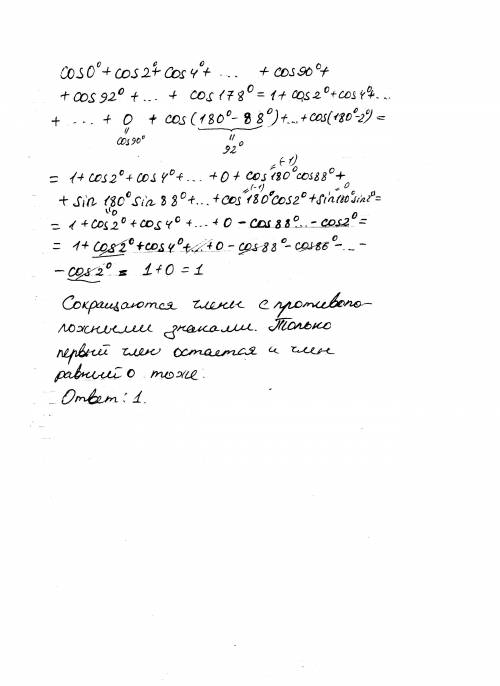 cos0° + cos2° + cos4° + ... + cos90° +
+ cos92° + ... + cos178° = 1 + cos2° + cos4° + ...
+ ... + 0 + cos(180° - 88°) + ... + cos(180° - 2°) =
" "
cos90° 92°
(-1)
= 1 + cos2° + cos4° + ... + 0 + cos180°cos88° +
(-1) 0
+ sin180°sin88° + ... + cos180°cos2° + sin180°sin2° =
"0
= 1 + cos2° + cos4° + ... + 0 - cos88° ... - cos2° =
= 1 + cos2° + cos4° + ... + 0 - cos88° - cos86° - ... -
- cos2° = 1 + 0 = 1
Сокращаются члены с противопо-
ложными знаками. Только
первый член остается и член
равный 0 тоже.
Ответ: 1.